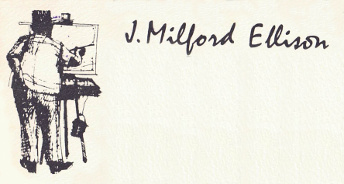 J. Milford Ellison